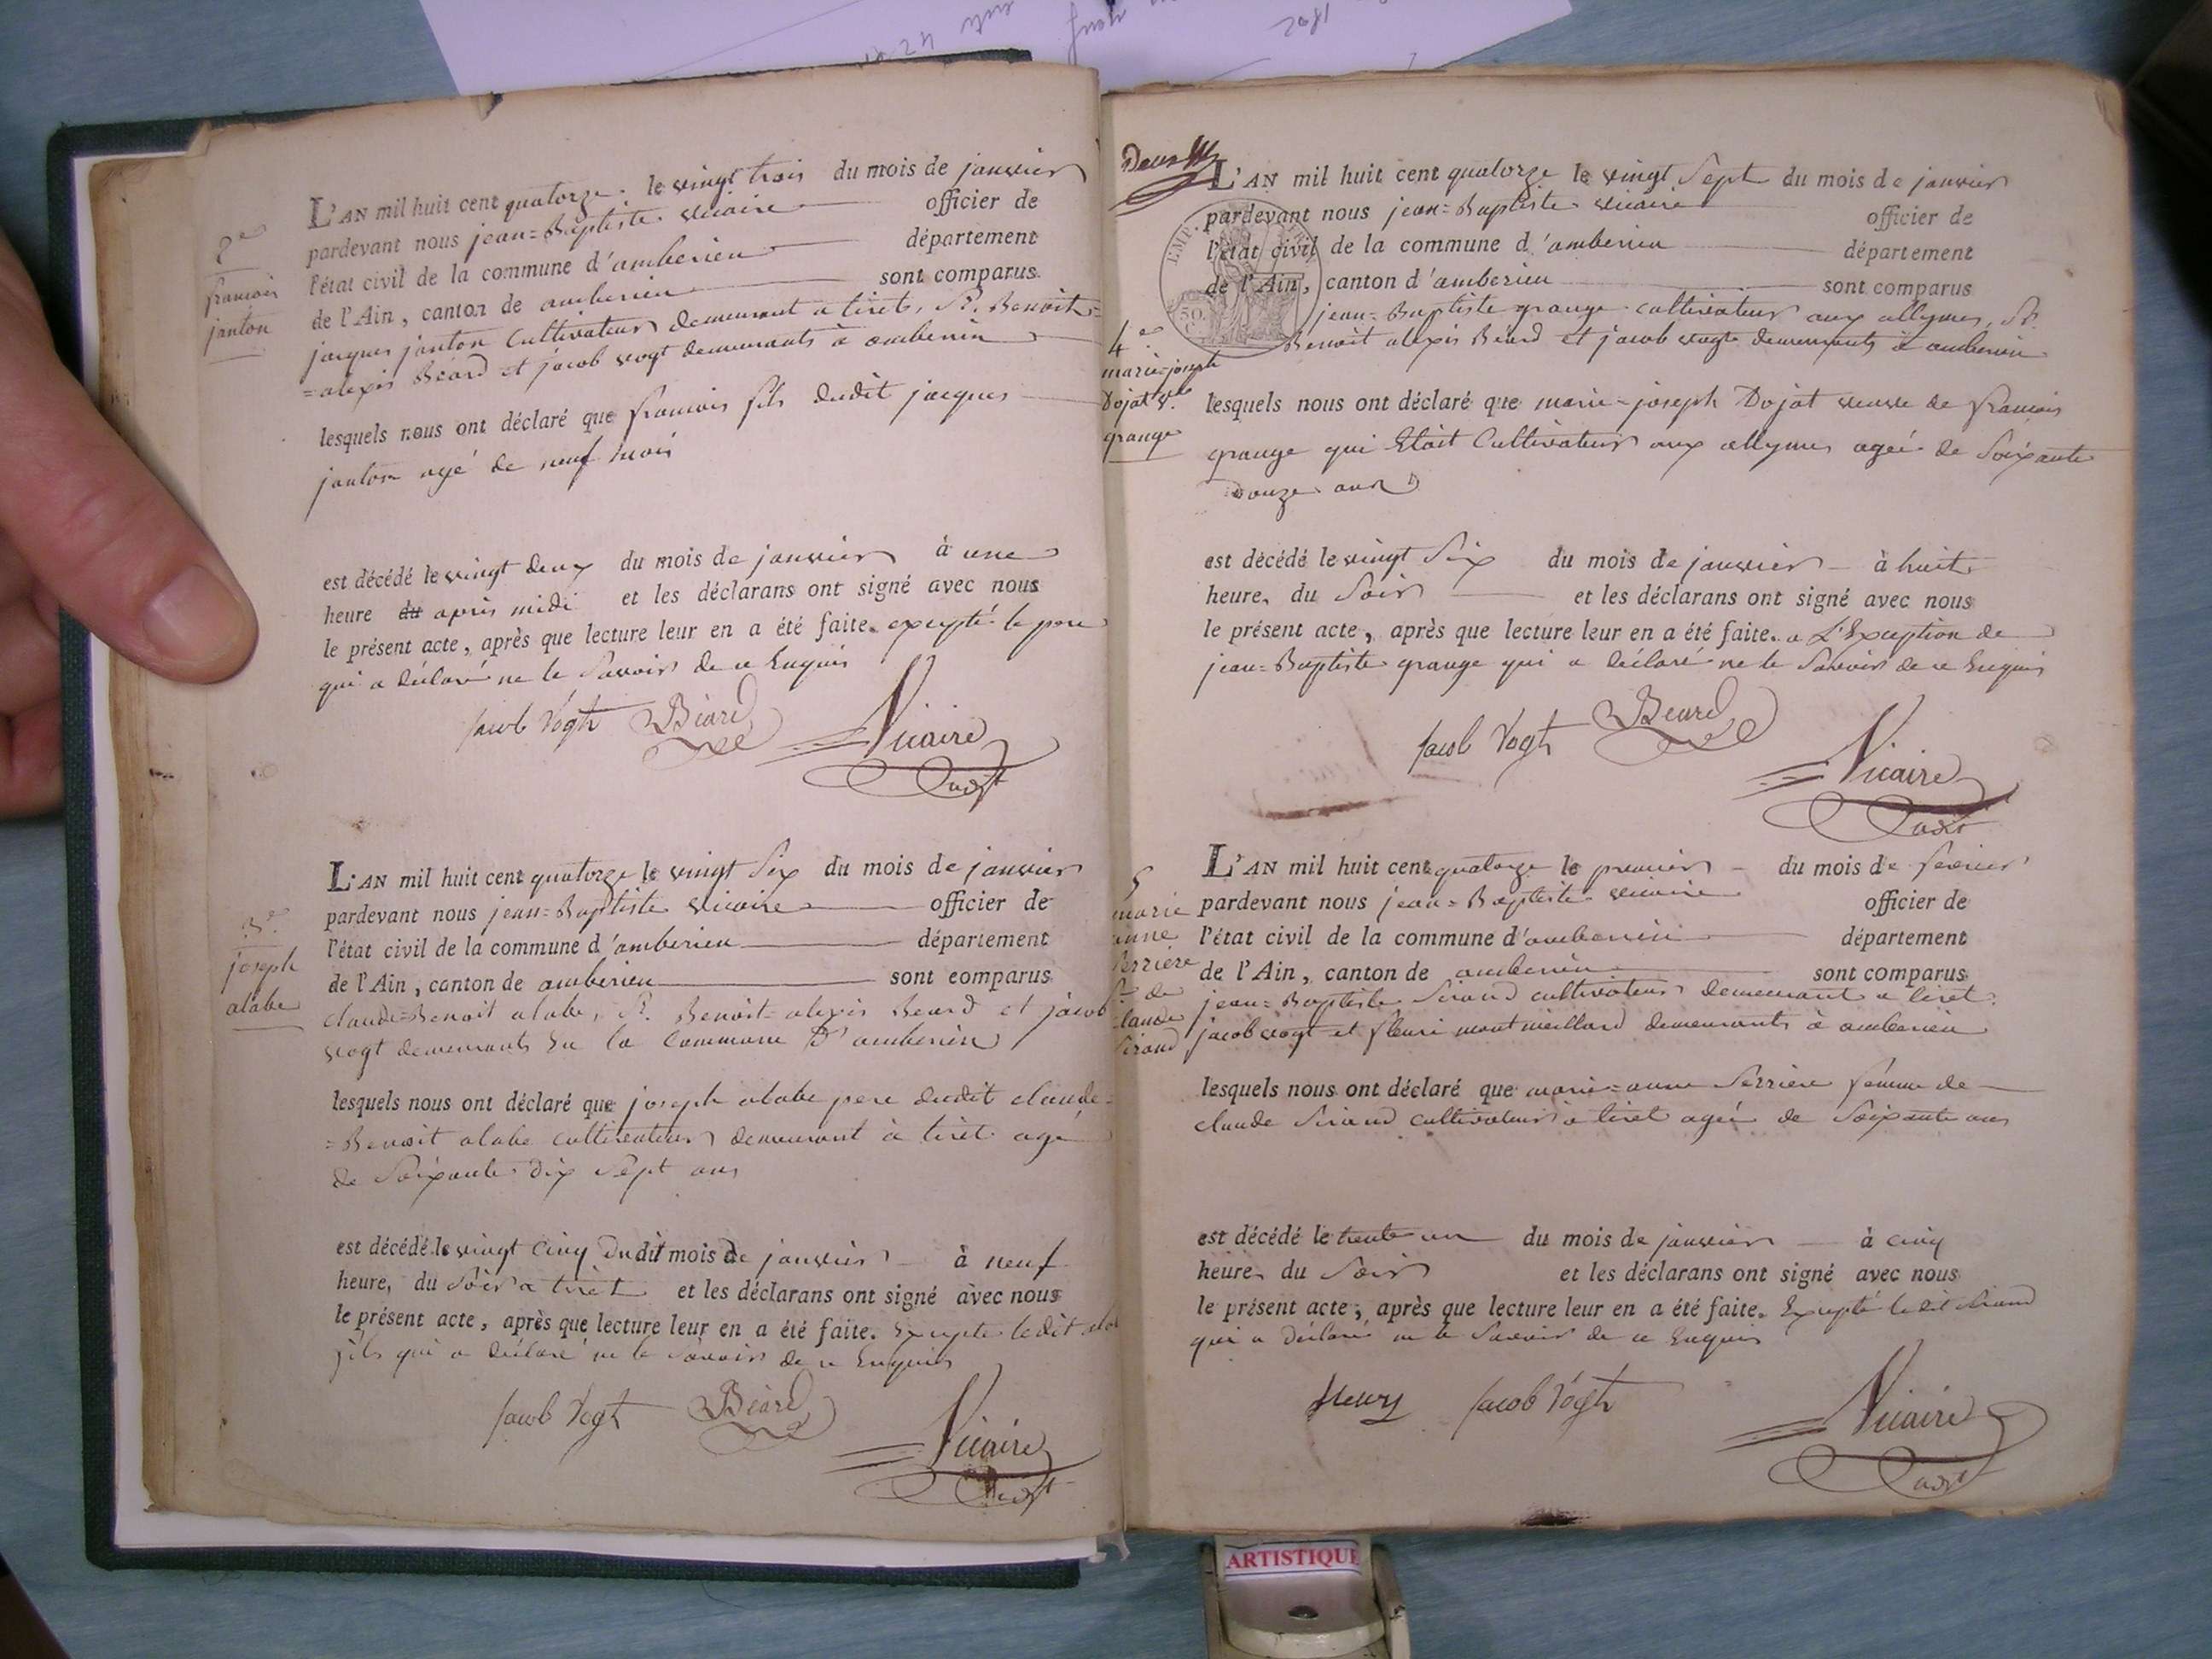 2e
francois
janton
L'AN mil huit cent quatorze le vingt trois du mois de janvier
pardevant nous jean=Baptiste vicaire officier de
l'état civil de la commune d'amberieu département
de l'Ain, canton de amberieu sont comparus
jacques janton Cultivateur demeurant a tiret, Sr. Benoit=
=alexis Béard et jacob vogt demeurants à amberieu
lesquels nous ont déclaré que francois fils dudit jacques
janton agé de neuf mois
est décédé le vingt deux du mois de janvier à une
heure du après midi et les déclarans ont signé avec nous
le présent acte, après que lecture leur en a été faite. excepté le pere
qui a déclaré ne le Savoir de ce Enquis
Jacob Vogt Béard Vicaire
adjt
3e
joseph
alabe
L'AN mil huit cent quatorze le vingt Six du mois de janvier
pardevant nous jean=Baptiste vicaire officier de
l'état civil de la commune d'amberieu département
de l'Ain, canton de amberieu sont comparus
claude=Benoit alabe, Sr. Benoit=alexis Beard et jacob
vogt demeurants En la Commune D'amberieu
lesquels nous ont déclaré que joseph alabe pere dudit claude=
=Benoit alabe cultivateur demeurant à tiret agé
de Soixante dix Sept ans
est décédé le vingt Cinq Dudit mois de janvier à neuf
heure, du Soir a tiret et les déclarans ont signé avec nous
le présent acte, après que lecture leur en a été faite. Excepte ledit
fils qui a déclaré ne le Savoir de ce Enquis
Jacob Vogt Béard Vicaire
adjt
Deux
EMP.
50
4e
marie=joseph
Dojat Ve
grange
L'AN mil huit cent quatorze le vingt Sept du mois de janvier
pardevant nous jean=Baptiste vicaire officier de
l'état civil de la commune d'amberieu département
de l'Ain, canton d'amberieu sont comparus
jean=Baptiste grange cultivateur aux allymes, Sr.
Benoit alexis Béard et jacob vogt demeurants a amberieu
lesquels nous ont déclaré que marie=joseph Dojat veuve de francois
grange qui Etait Cultivateur aux allymes agée de Soixante
Douze ans
est décédé le vingt Six du mois de janvier à huit
heure, du Soir et les déclarans ont signé avec nous
le présent acte, après que lecture leur en a été faite. a L'Exception de
jean=Baptiste grange qui a déclaré ne le Savoir de ce Enquis
Jacob Vogt Beard Vicaire
adjt
5
marie
anne
Serriere
fe de
claude
Sirand
L'AN mil huit cent quatorze le premier du mois de fevrier
pardevant nous jean=Baptiste vicaire officier de
l'état civil de la commune d'amberieu département
de l'Ain, canton de amberieu sont comparus
jean=Baptiste Sirand cultivateur demeurant a tiret.
jacob vogt et fleuri montmeillard demeurants à amberieu
lesquels nous ont déclaré que marie=anne Serriere femme de
claude Sirand cultivateur a tiret agée de Soixante ans
est décédé le trente un du mois de janvier à cinq
heure, du Soir et les déclarans ont signé avec nous
le présent acte, après que lecture leur en a été faite. Excepté ledit Sirand
qui a déclaré ne le Savoir de ce Enquis
fleury Jacob Vogt Vicaire
adjt
ARTISTIQUE